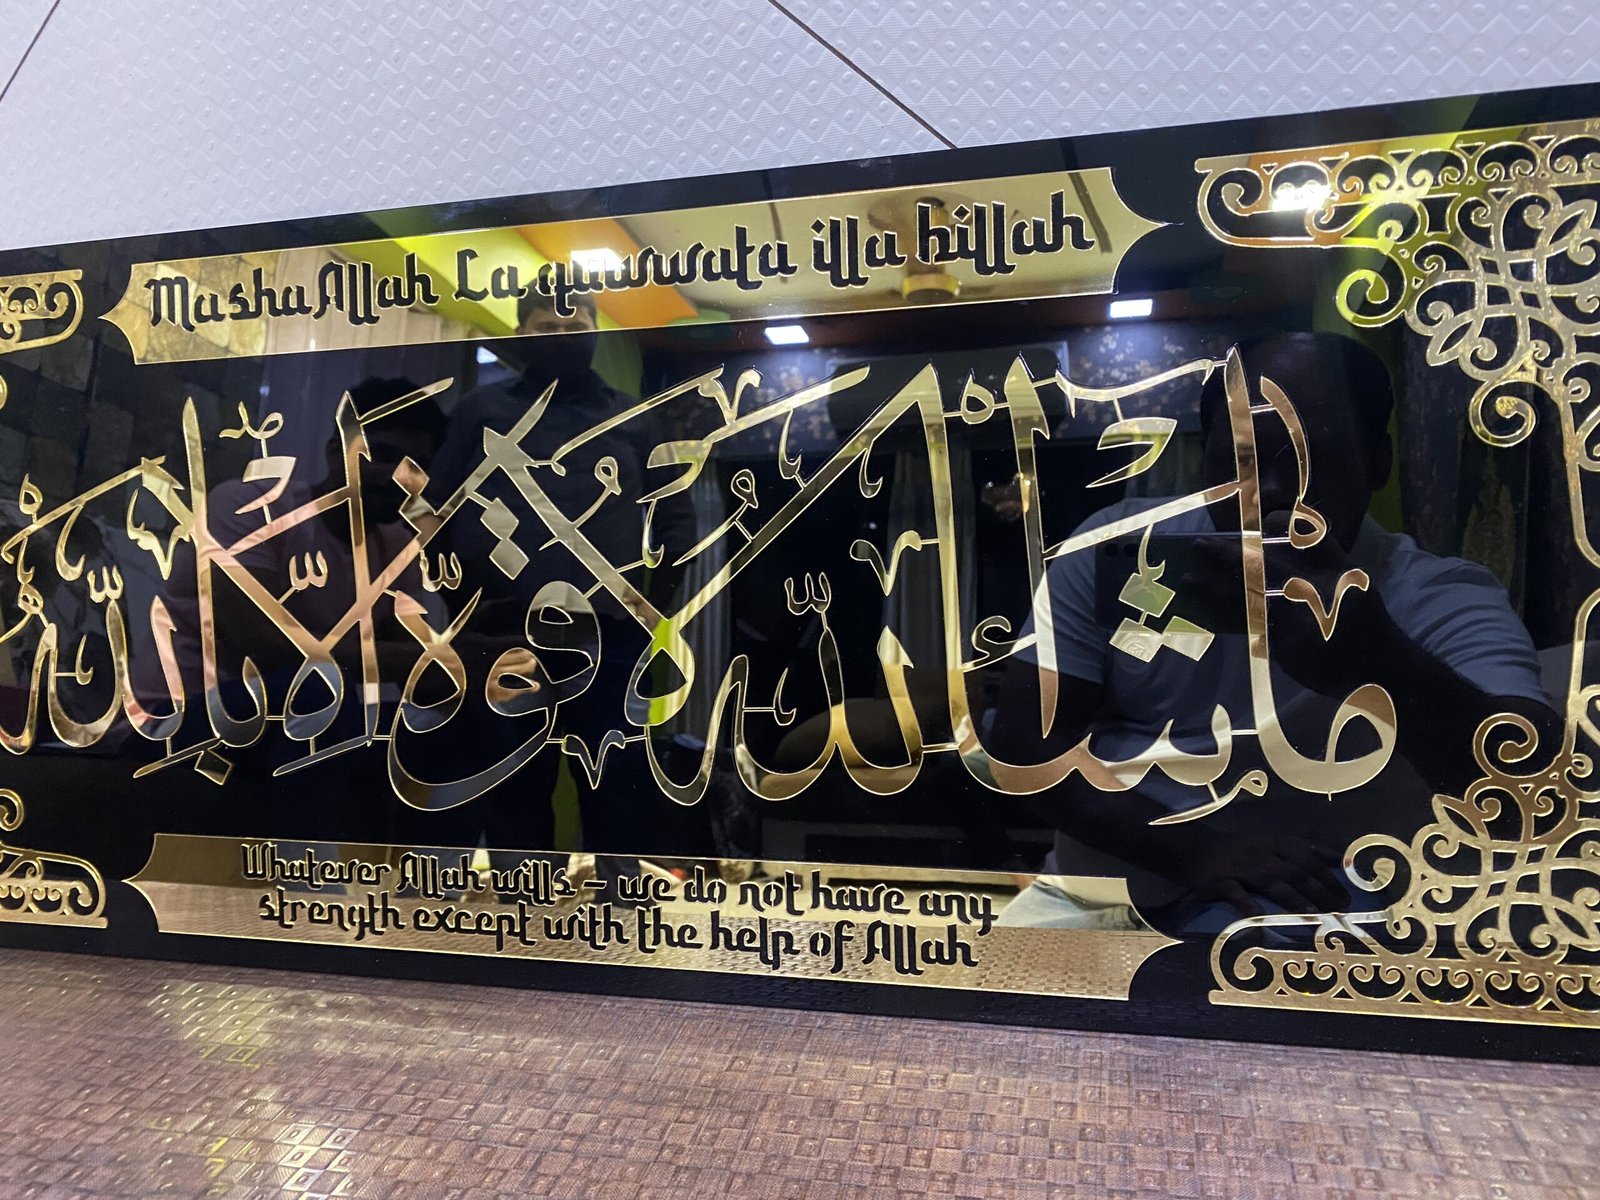 MashaAllah La quwwata illa billah
ما شاء الله لا قوة إلا بالله
Whatever Allah wills – we do not have any
strength except with the help of Allah